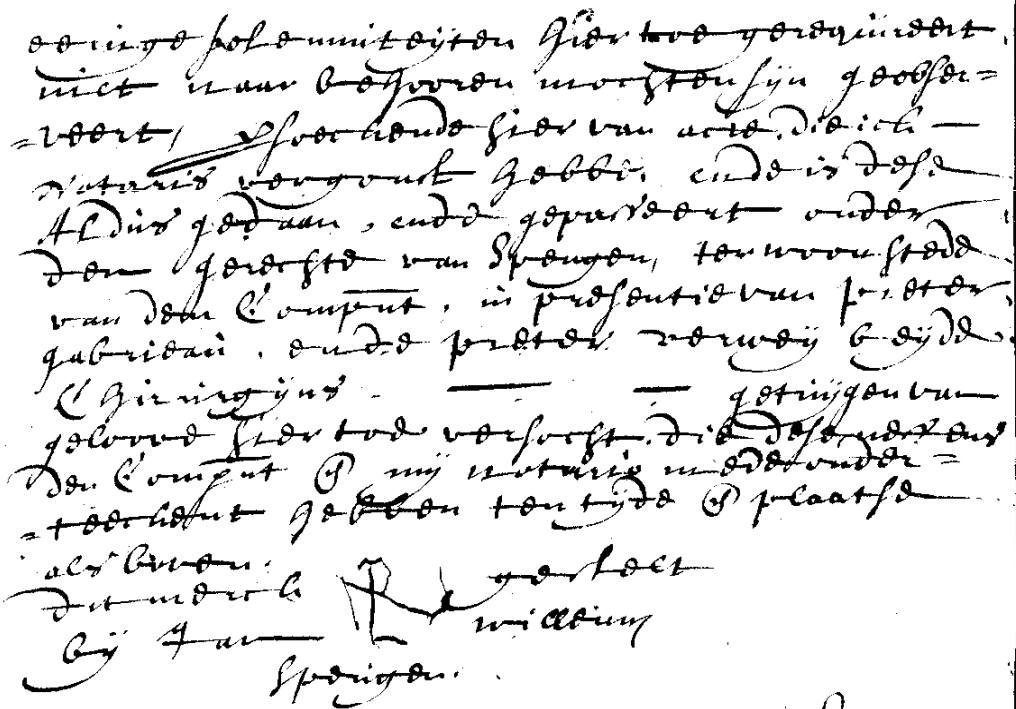 eenige solemniteyten hier toe gerequireert,
niet naar behooren mochten sijn geobser=
=veert, Versoeckende hier van acte, die ick —
Notaris vergont hebbe, ende is dese
Aldus gedaan, ende gepasseert onder
den gerechte van Spengen, ter woonstede
van den Compnt, in presentie van pieter
gabrieau, ende pieter verwey beyde
Chirurgyns — — getuygen van
geloove hier toe versocht, die dese neffens
den Compnt & my notario mede onder=
=teeckent hebben ten tyde & plaatse
als boven.
dit merck gestelt
by Jan willemn
Spengen.